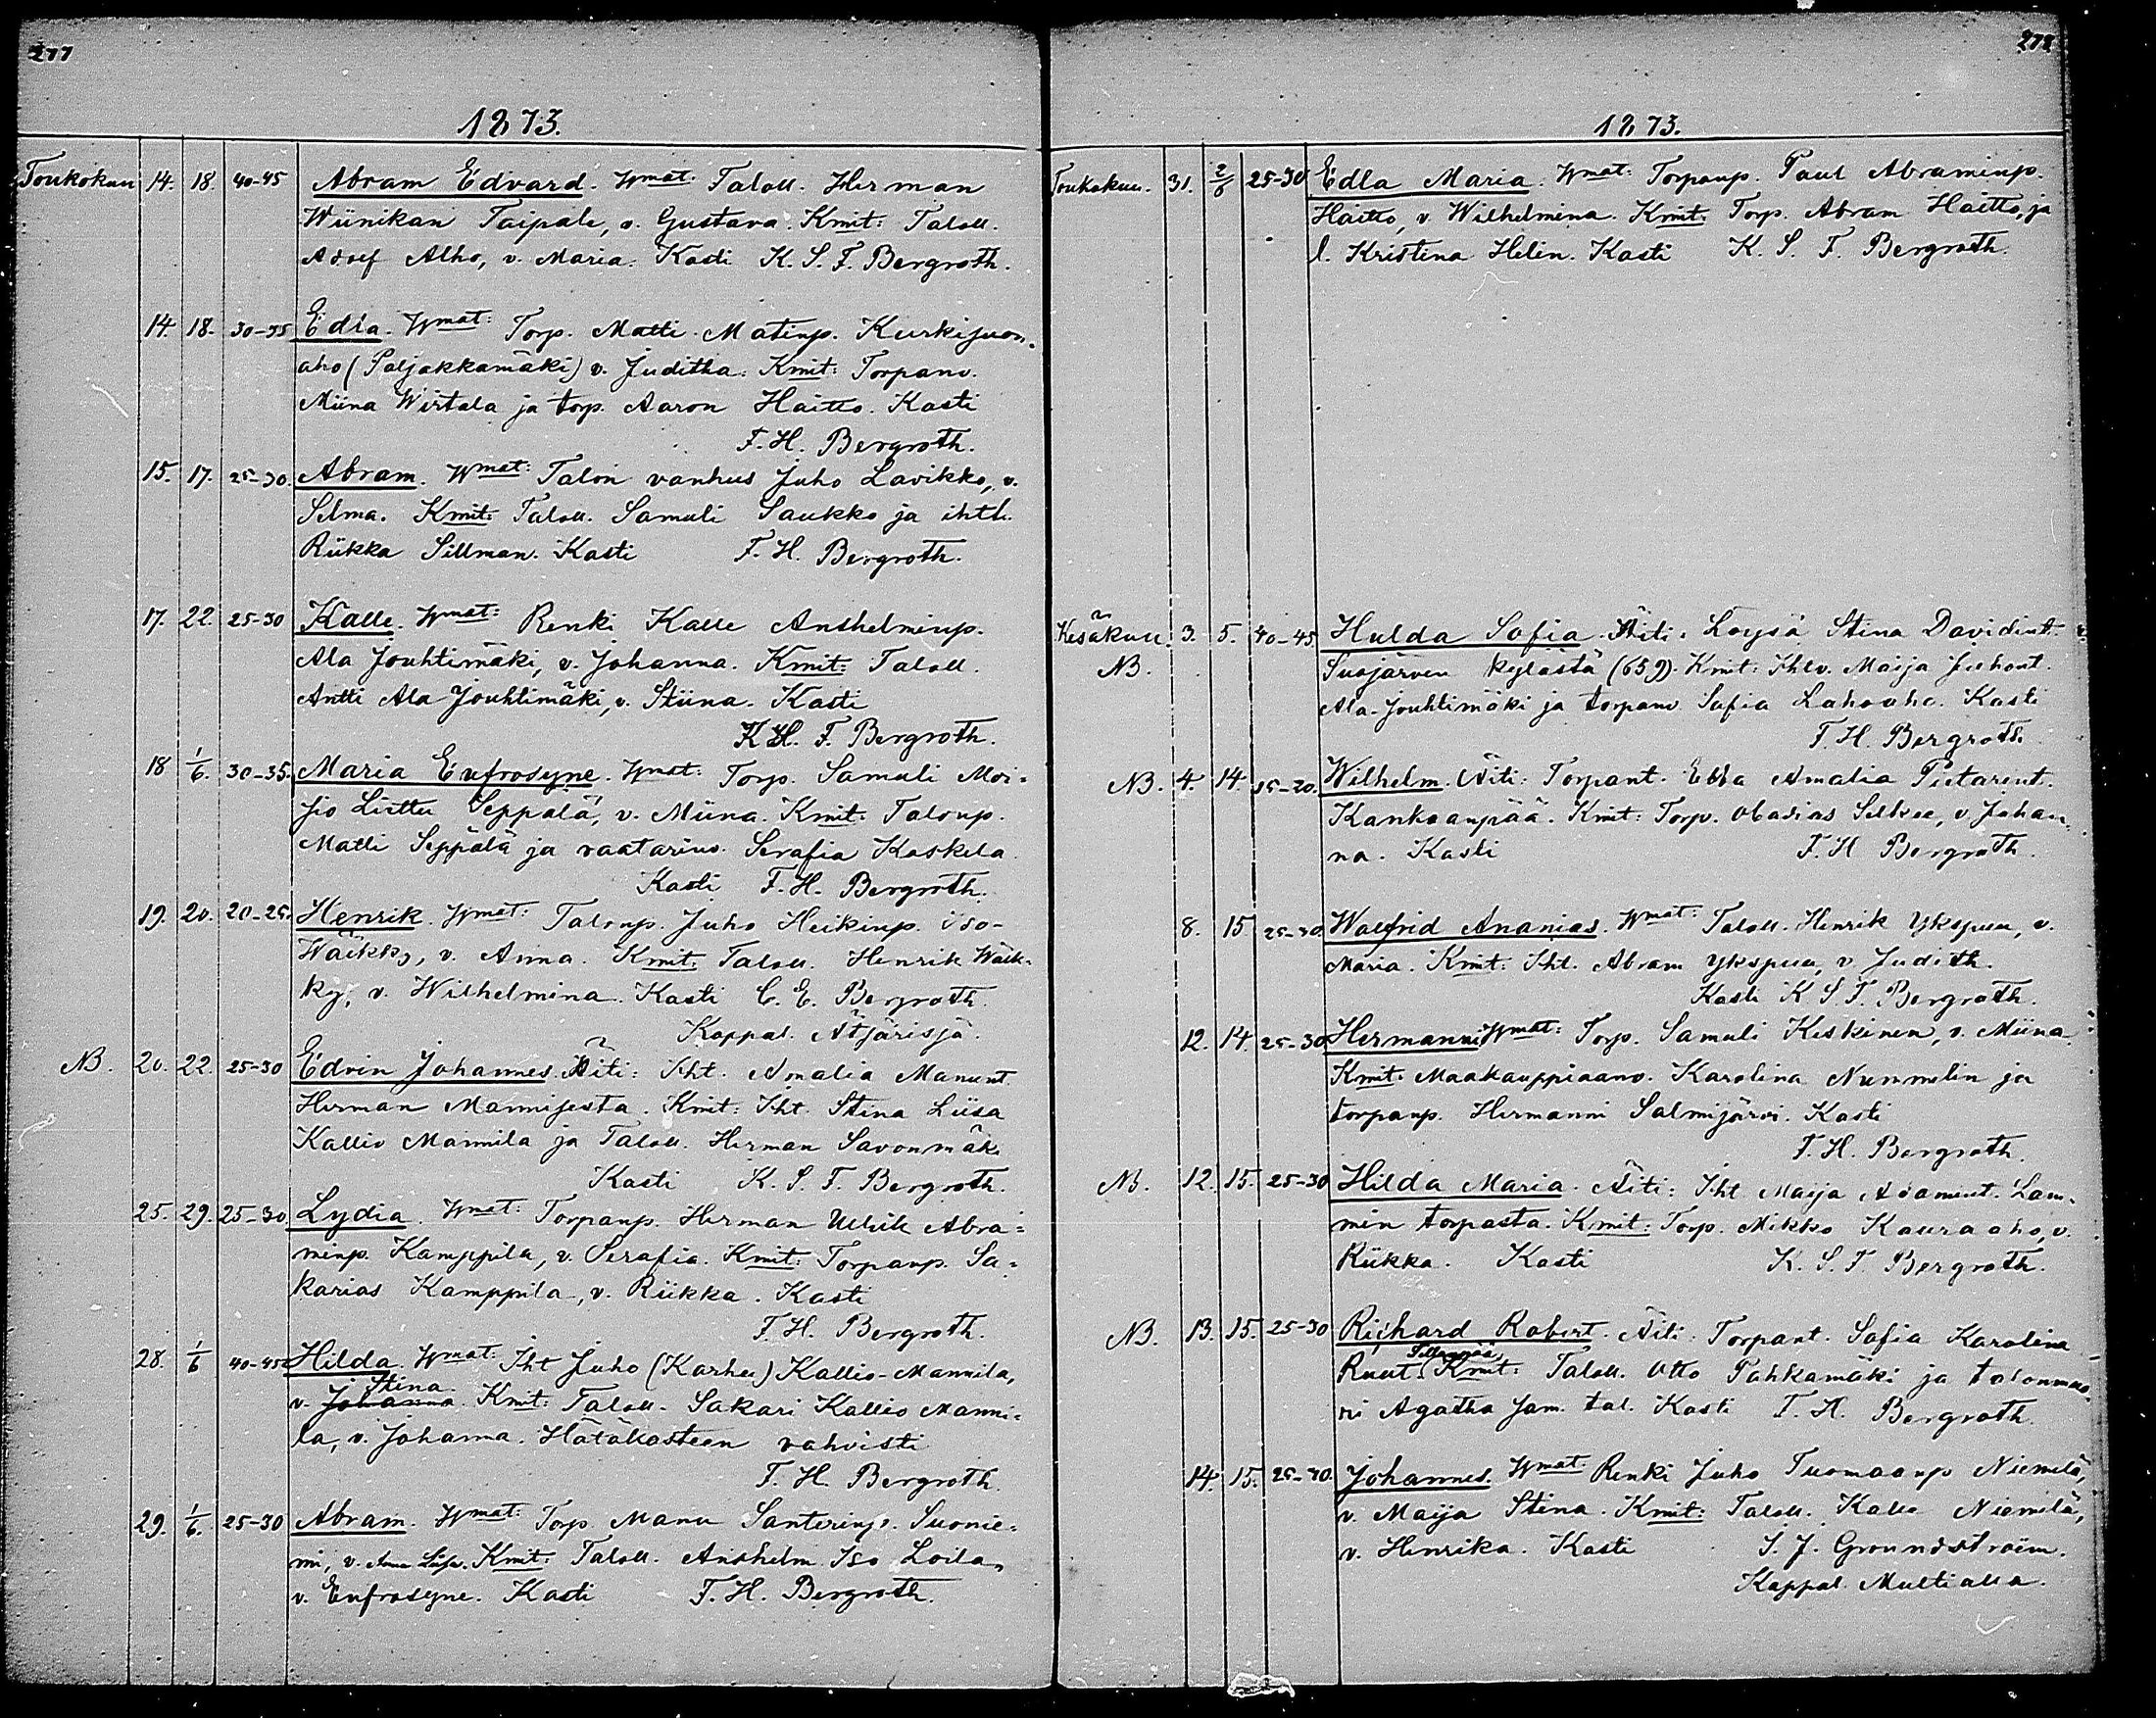 277
1873.
Toukokuu 14. 18. 40-45 Abram Edvard. Wmat: Taloll. Herman
Wiinikan Taipale, v. Gustava. Kmit: Taloll.
Adolf Alho, v. Maria. Kasti K. S. F. Bergroth.
14. 18. 30-35 Edla. Wmat: Torp. Matti Matinp. Kurkijuon-
aho (Paljakkamäki) v. Juditha. Kmit: Torpanv.
Miina Wirtala ja torp. Aaron Haitto. Kasti
F. H. Bergroth.
15. 17. 25-30. Abram. Wmat: Talon vanhus Juho Lavikko, v.
Selma. Kmit: Taloll. Samuli Saukko ja ihtl.
Riikka Sillman. Kasti F. H. Bergroth.
17. 22. 25-30 Kalle. Wmat: Renki Kalle Anshelminp.
Ala Jouhtimäki, v. Johanna. Kmit: Taloll.
Antti Ala Jouhtimäki, v. Stiina. Kasti
F. Bergroth.
18 1/6. 30-35. Maria Eufrosyne. Wmat: Torp. Samuli Moi=
sio Liettu Seppälä, v. Miina. Kmit: Talonp.
Matti Seppälä ja raatarinv. Serafia Koskela.
Kasti F. H. Bergroth.
19. 20. 20-25. Henrik. Wmat: Talonp. Juho Heikinp. iso-
Wäikky, v. Anna. Kmit: Taloll. Henrik Wäik-
ky, v. Wilhelmina. Kasti C. E. Bergroth.
Koppal. Ätjärisjä.
NB. 20. 22. 25-30 Edvin Johannes. Äiti: Iht. Amalia Manunt.
Herman Mannisesta. Kmit: Iht. Stina Liisa
Kallio Mannila ja Taloll. Herman Savonmäki
Kasti K. S. F. Bergroth.
25. 29. 25-30 Lydia. Wmat: Torpanp. Herman Ulrik Abra=
minp. Kamppila, v. Serafia. Kmit: Torpanp. Sa=
karias Kamppila, v. Riikka. Kasti
F. H. Bergroth.
28. 1/6 40-45 Hilda. Wmat: Iht Juho (Karhu) Kallio-Mannila,
Stina
v. Johanna. Kmit: Taloll. Sakari Kallio Manni=
la, v. Johanna. Hätäkasteen vahvisti
F. H. Bergroth.
29. 1/6. 25-30 Abram. Wmat: Torp. Manu Santerinp. Suonie=
mi, v. Anna Liisa. Kmit: Taloll. Anshelm Iso Loila,
v. Eufrosyne. Kasti F. H. Bergroth.
278
1873.
Toukokuu. 31. 2/6 25-30 Edla Maria. Wmat: Torpanp. Paul Abraminp.
Haitto, v. Wilhelmina. Kmit: Torp. Abram Haitto, ja
l. Kristina Helin. Kasti K. S. F. Bergroth.
Kesäkuu. 3. 5. 40-45 Hulda Sofia. Äiti: Loysä Stina Davidint.
NB. Suojärven kylästä (659). Kmit: Ihlv. Maija Juhont.
Ala-Jouhtimäki ja torpanv. Sofia Lahoaho. Kasti
F. H. Bergroth.
NB. 4. 14. 15-20. Wilhelm. Äiti: Torpant. Ebba Amalia Pietarint.
Kankaanpää. Kmit: Torp. Obadias Selkee, v. Johan-
na. Kasti F. H Bergroth.
8. 15 25-30 Walfrid Ananias. Wmat: Taloll. Henrik Ykspuu, v.
Maria. Kmit: Ihl. Abram Ykspuu, v Judith.
Kasti K. S. F. Bergroth.
12. 14. 25-30 Hermanni Wmat: Torp. Samuli Keskinen, v. Miina.
Kmit: Maakauppiaanv. Karolina Nummelin ja
torpanp. Hermanni Salmijärvi. Kasti
F. H. Bergroth.
NB. 12. 15. 25-30 Hilda Maria. Äiti: Iht Maija Adamint. Lam-
min torpasta. Kmit: Torp. Mikko Kauraaho, v.
Riikka. Kasti K. S. F. Bergroth.
NB. 13. 15. 25-30 Richard Robert. Äiti. Torpant. Sofia Karolina
Ruut. Kmit: Taloll. Otto Pahkamäki ja talonmuo-
ri Agatha Jam. tal. Kasti F. H. Bergroth.
14. 15. 25-30. Johannes. Wmat: Renki Juho Tuomaanp Niemelä,
v. Maija Stina. Kmit: Taloll. Kalle Niemelä,
v. Henrika. Kasti S. J. Groundstroëm.
Kappal. Multialla.